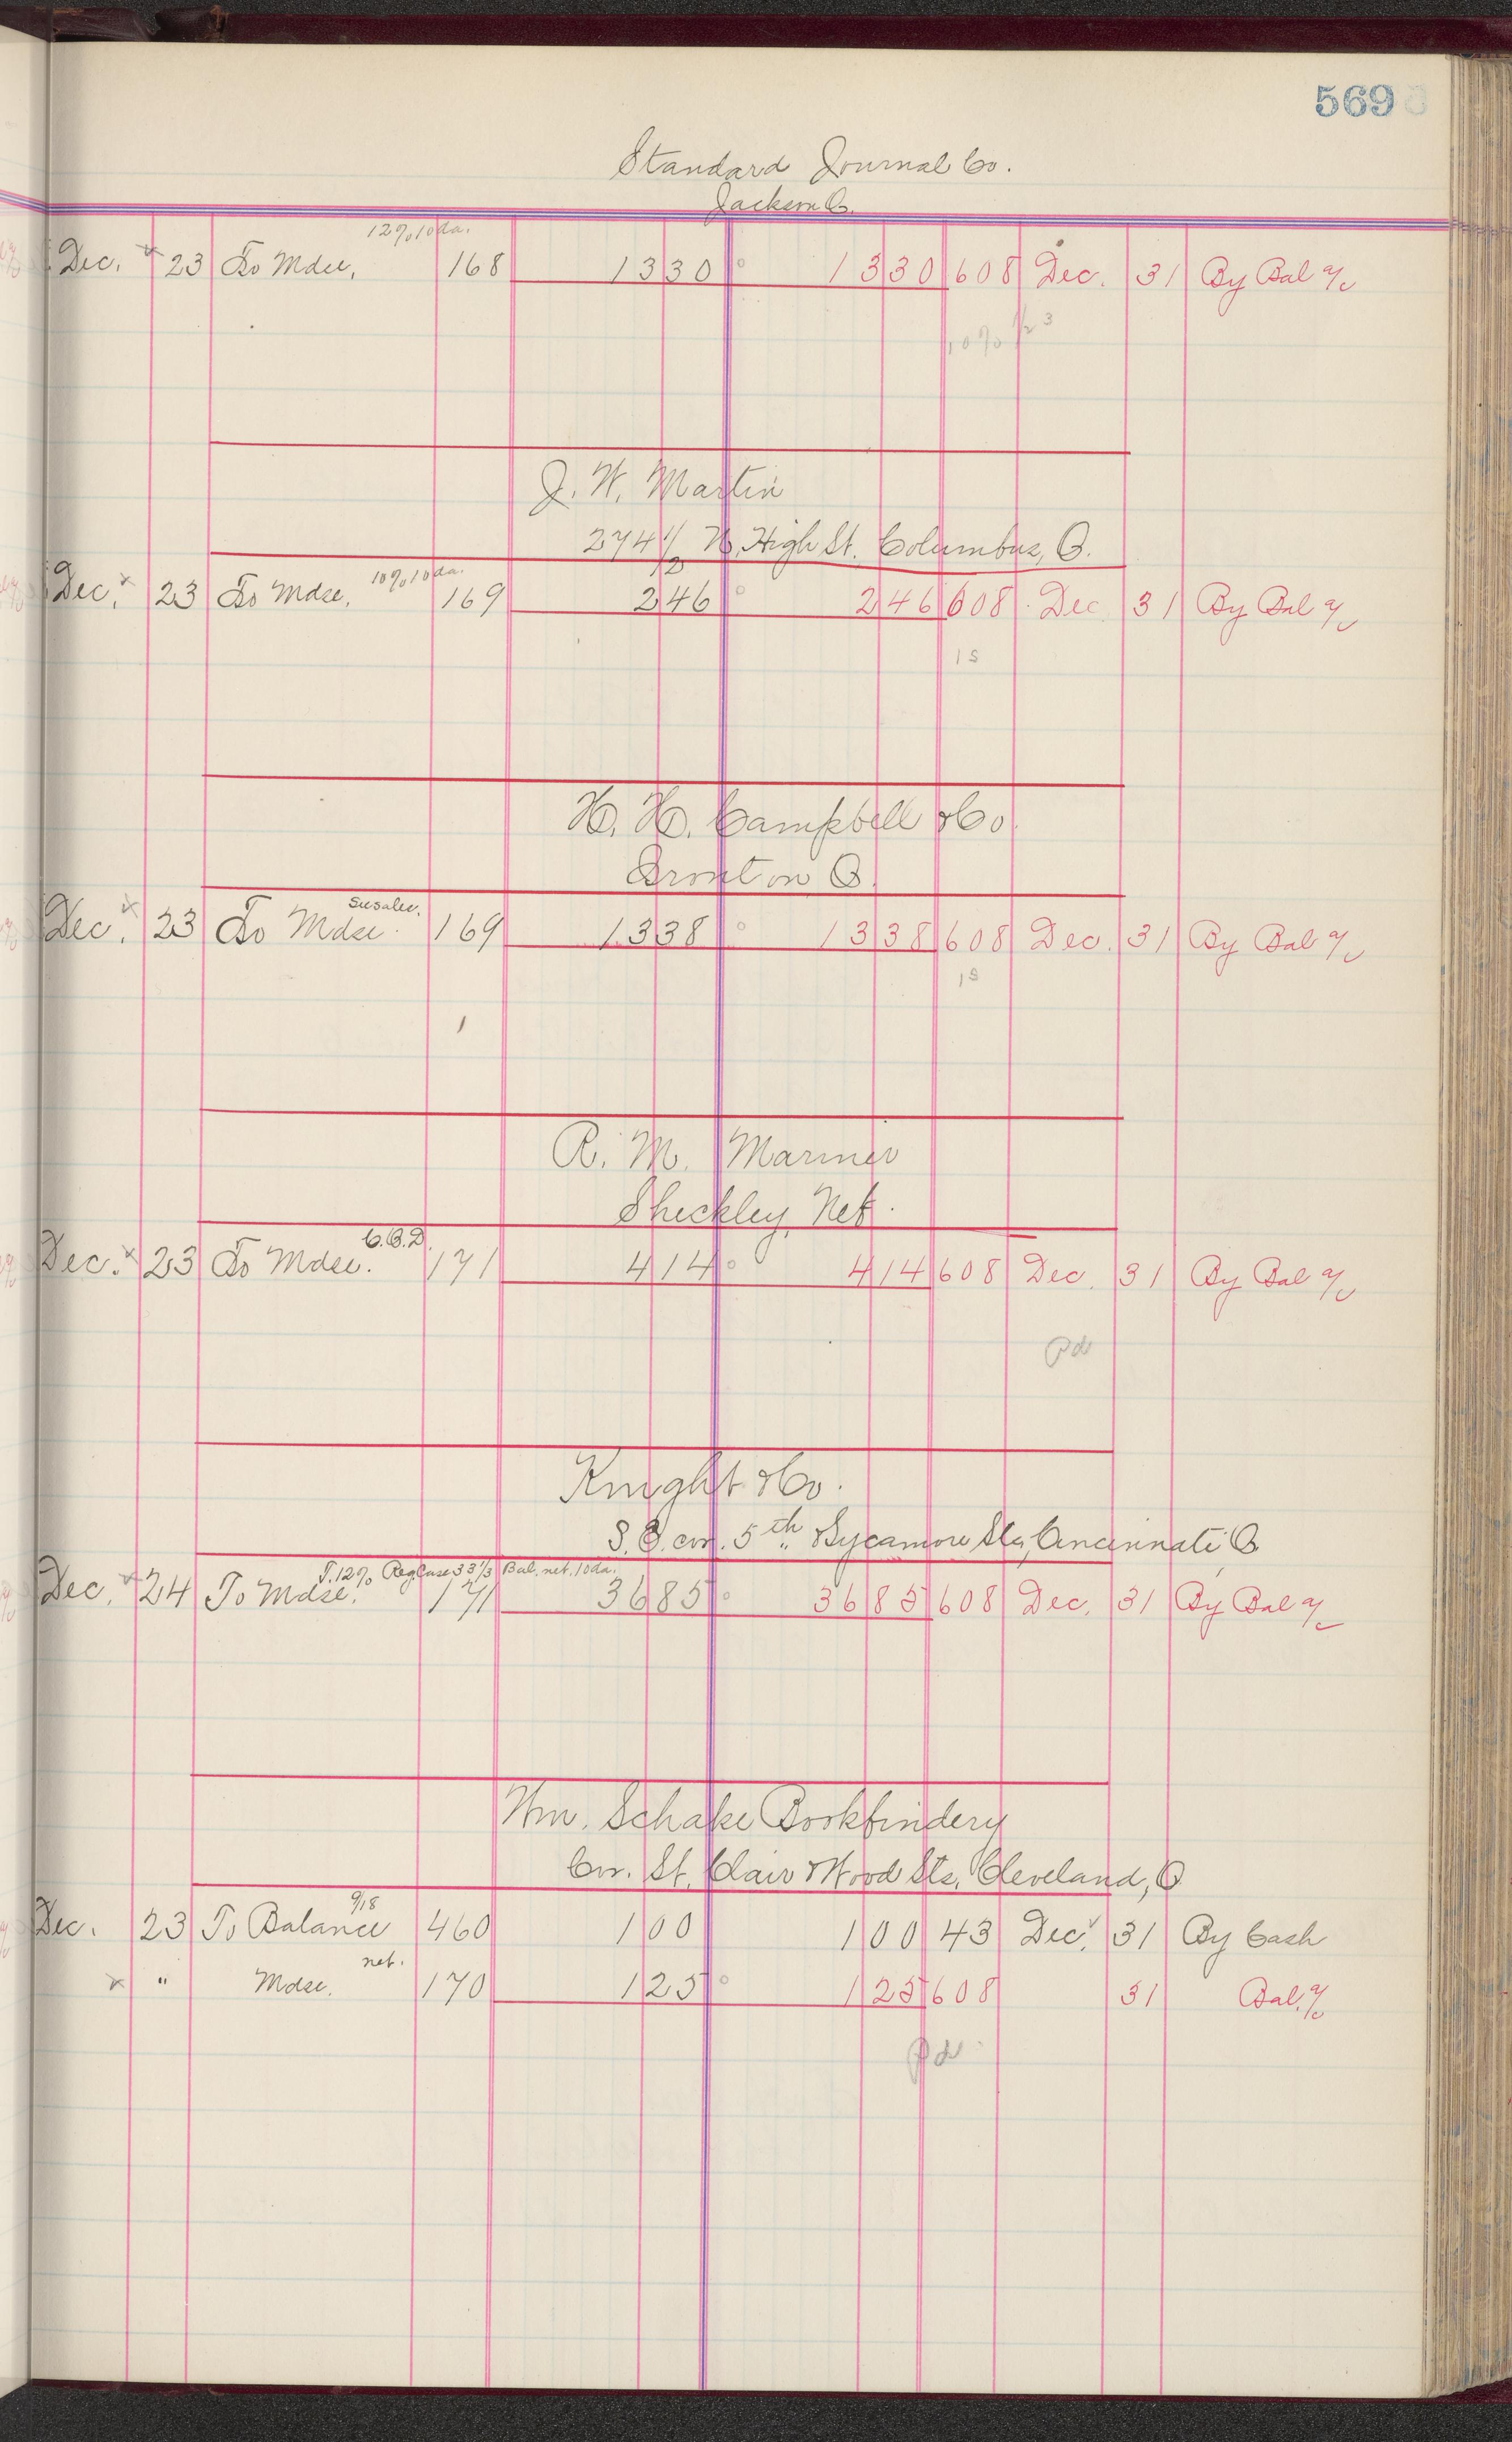 569
Standard Journal Co.
Jackson O.
12% 10 da.
Dec. x 23 To Mdse, 168 1330 1330 608 Dec. 31 By Bal a/c
10% 1/23
J. W. Martin
274 1/2 N. High St. Columbus, O.
10% 10 da.
Dec. x 23 To Mdse. 169 246 246 608 Dec 31 By Bal a/c
15
H. H. Campbell & Co
Ironton O.
Dec. x 23 To Mdse. 169 1338 1338 608 Dec. 31 By Bal a/c
R. M. Mariner
Sheckley, Neb.
C.O.D.
Dec. x 23 To Mdse. 171 414 414 608 Dec. 31 By Bal a/c
Pd
Knight & Co.
S. E. cor. 5th " Sycamore Sts, Cincinnati O
T. 12% Reg Case 33 1/3 Bal. net. 10 da.
Dec. x 24 To Mdse. 171 3685 3685 608 Dec. 31 By Bal a/c
Wm. Schake Bookbindery
Cor. St. Clair & Wood Sts. Cleveland, O
9/18
Dec. 23 To Balance 460 100 100 43 Dec. 31 By Cash
net.
x " Mdse. 170 125 125 608 31 Bal. a/c
Pd